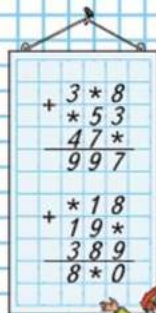 + 3 * 8
* 5 3
4 7 *
9 9 7
+ * 1 8
1 9 *
3 8 9
8 * 0